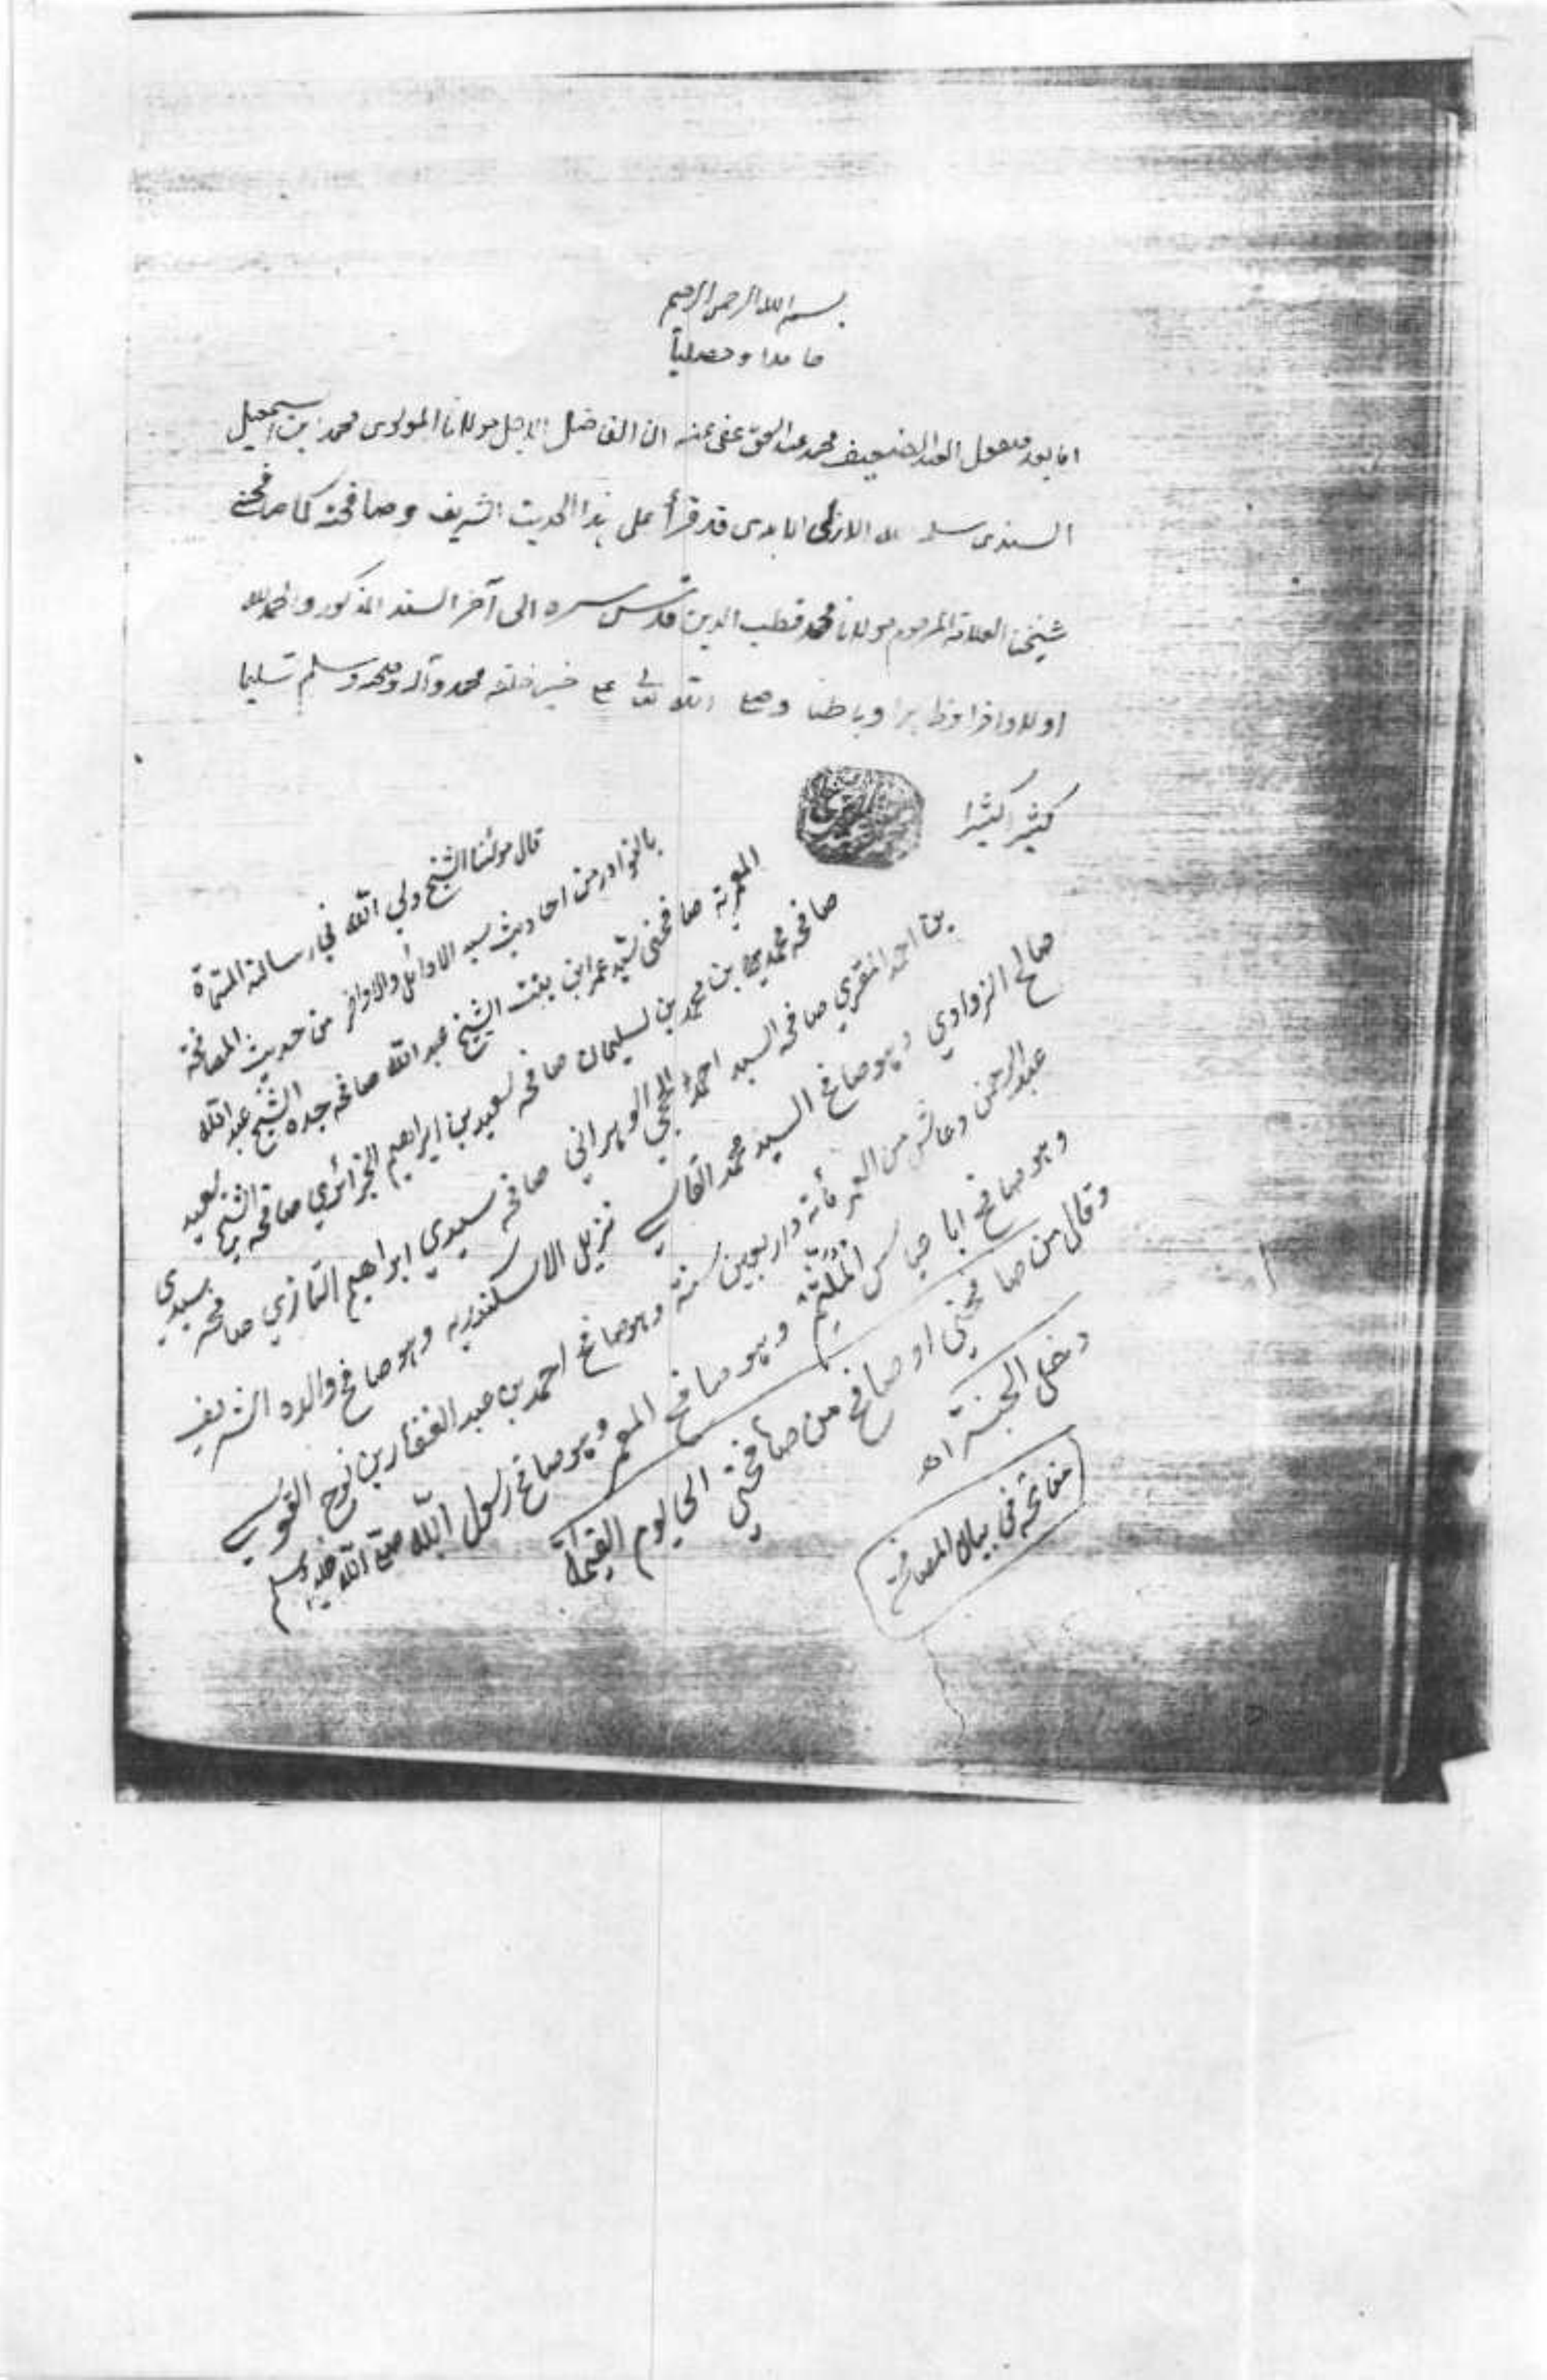 بسم الله الرحمن الرحيم
حامدا ومصلياً
اما بعد فيقول العبد الضعيف محمد عبد الحق عفى عنه ان الفاضل الاجل مولانا المولوى محمد ابن اسمعيل
السندى سلمه الله الازلى الابدى قد قرأ على هذا الحديث الشريف وصافحته كما صافحنى
شيخنا العلامة المرحوم مولانا محمد قطب الدين قدس سره الى آخر السند المذكور والحمد لله
اولا واخرا وظاهرا وباطنا وصلى الله تعالى على خير خلقه محمد وآله وصحبه وسلم تسليما
كثيرا كثيرا
قال مولنا الشيخ ولي الله في رسالته المسماة
بالنوادر من احاديث سيد الاوائل والاواخر من حديث المصافحة
المعمرية صافحني سيد عمر ابن بنت الشيخ عبد الله صافحه جده الشيخ عبد الله
صافحه محمد بن محمد بن سليمان صافحه سعيد بن ابراهيم الجزائري صافحه الشيخ سعيد
بن احمد المقري صافحه السيد احمد الحجي الوهراني صافحه سيدي ابراهيم التازي صافحه سيدي
صالح الزواوي وهو صافح السيد محمد الفاسي نزيل الاسكندرية وهو صافح والده الشريف
عبد الرحمن وعاش من العمر مأة واربعين سنة وهو صافح احمد بن عبد الغفار بن نوح القوسي
وهو صافح ابا العباس الملثم وهو صافح المعمر وهو صافح رسول الله صلى الله عليه وسلم
وقال من صافحني او صافح من صافحني الى يوم القيمة
دخل الجنة اه
في بيان المصافحة